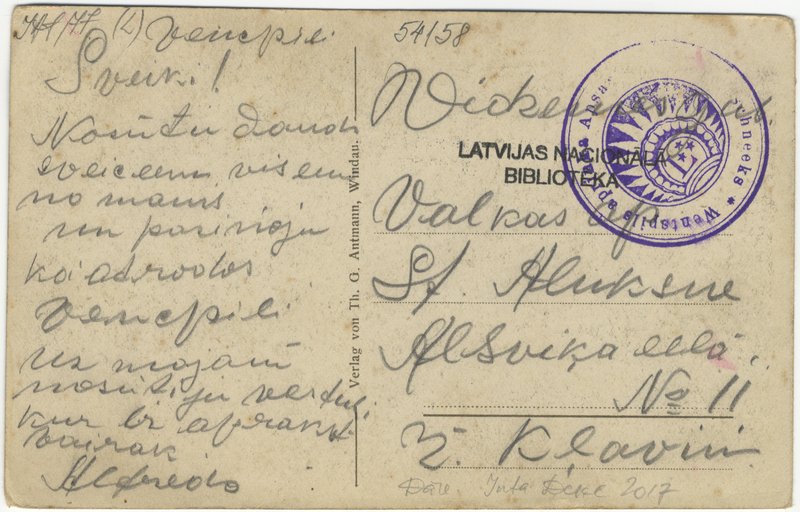 54158
Vencpili
Sveiki!
Nosūtu daudz
sveicenu visiem
no manis
un paziņoju
ka atrodos
Vencpili
uz mājām
nosūtiju vēstuli
kur ir aprakst
vairak
Alfredo
Verlag von Th. G. Antmann, Windau.
LATVIJAS NACIONĀLĀ
BIBLIOTĒKA
Wentspils apr
Valkas apr
St. Aluksne
Alsviķa ielā
No 11
Z. Kļaviņ
Dāv. Inta Deķe 2017